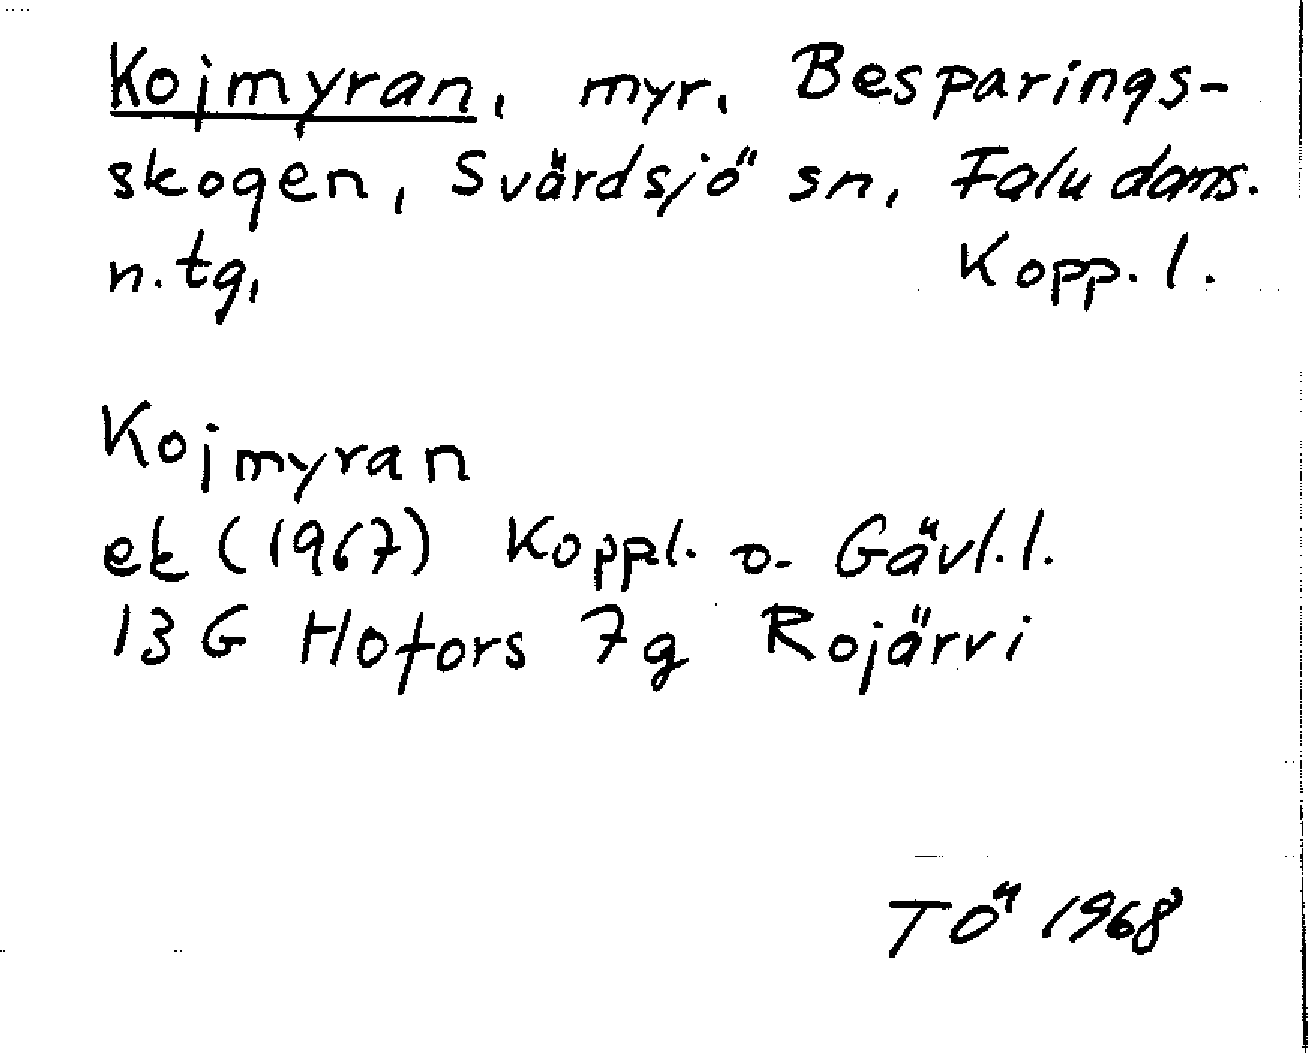 Kojmyran, myr, Besparings-
skogen, Svärdsjö sn, Falu doms.
n.tg, Kopp. l.
Kojmyran
ek (1967) Koppl. o. Gävl. l.
13 G Hofors 7g Rojärvi
TÖ 1968